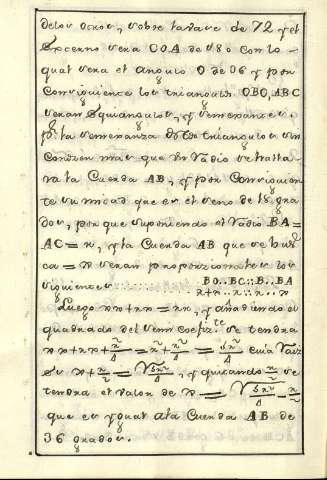 delos otros, sobre la vase de 72 y el
Externo sera OOA de 180 con lo-
qual sera el angulo O de 36 y por
Consiguiente los triangulos OBO, ABC
seran Equiangulos, y semejantes.
la semejanza triangulos sin
mas que el Radio se halla
ra la Cuerda AB, y por Consiguien
te su mitad que es el seno de 18 gra
dos, porque suponiendo el Radio BA=
AC= r, y la Cuerda AB que se bus
ca = s seran proporzionales los
siguientes BO..BC::B..BA
Luego ss+rs=rr, y añadiendo el
quadrado del semi se tendra
cuia Raiz
y quitando se
tendra el valor de s =
que es ygual ala Cuerda AB de
36 grados.